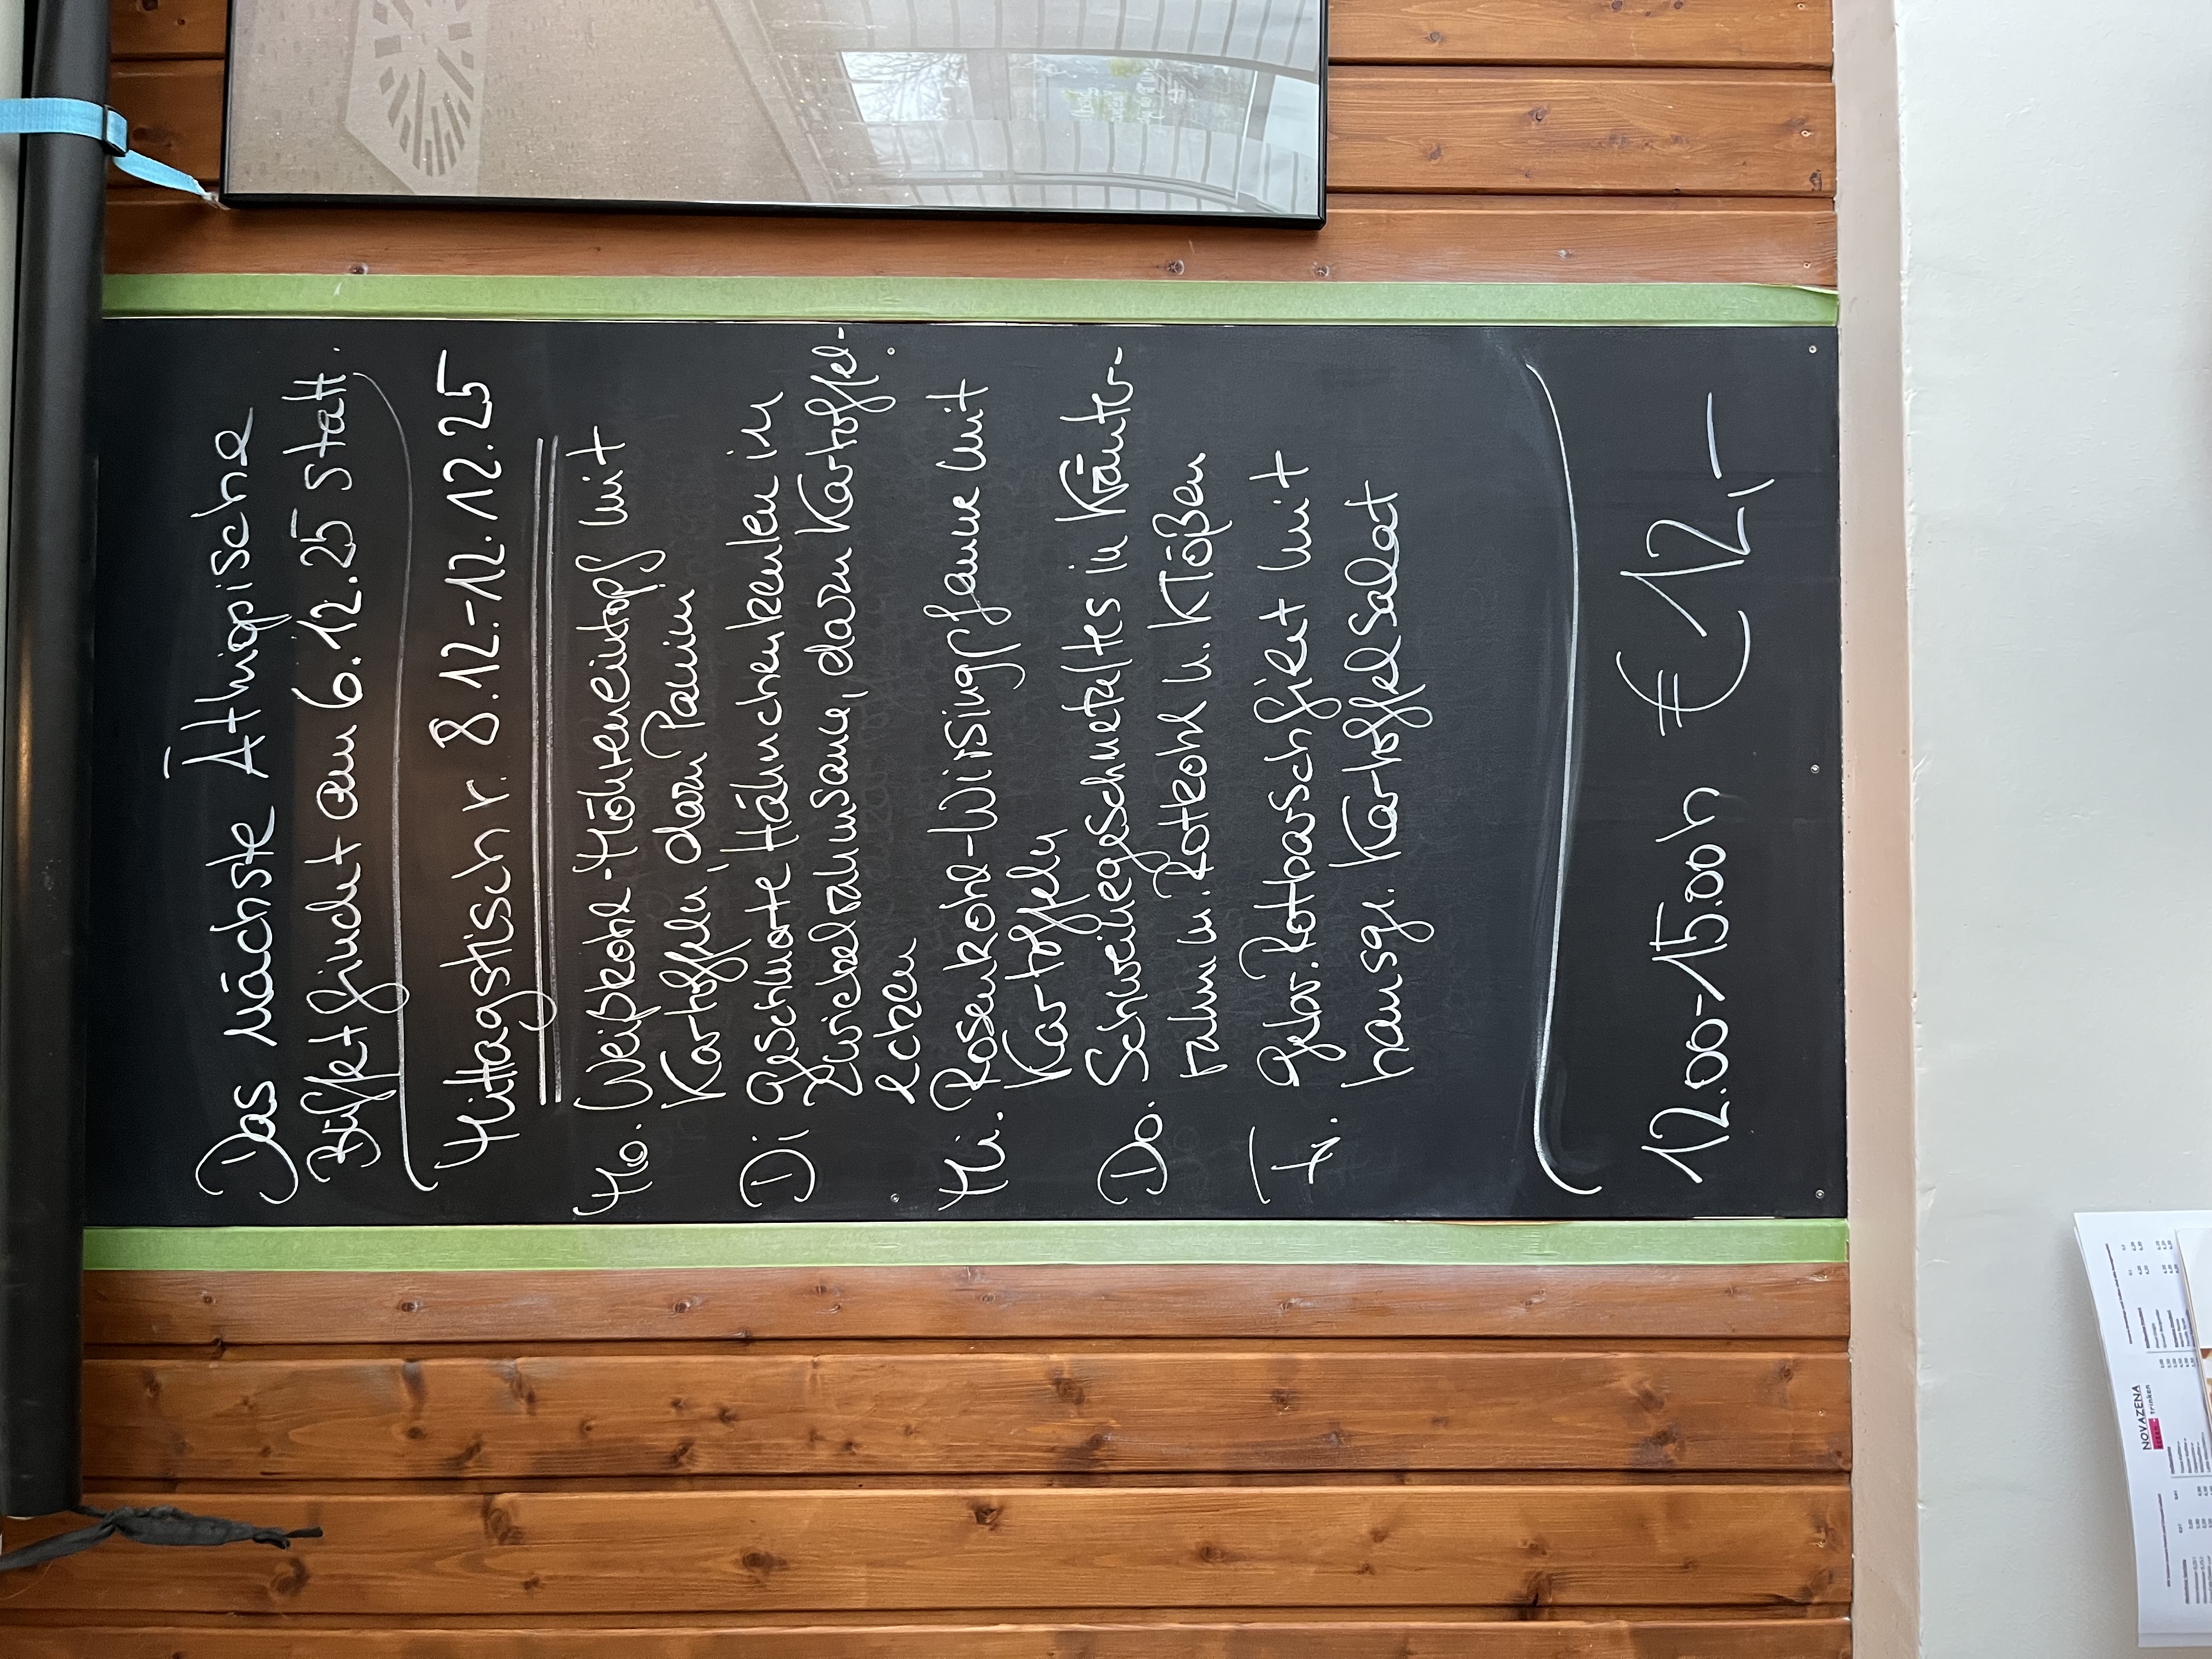 Das nächste Äthiopische
Büffet findet am 6.12.25 statt.
Mittagstisch v. 8.12.-12.12.25
Mo. Weißkohl-Möhreneintopf mit
Kartoffeln, dazu Panini
Di Geschmorte Hähnchenkeulen in
Zwiebelrahmsauce, dazu Kartoffel-
ecken
Mi. Rosenkohl-Wirsingpfanne mit
Kartoffeln
Do. Schweinegeschnetzeltes in Kräuter-
rahm m. Rotkohl u. Klößen
Fr. Gebr. Rotbarschfilet mit
hausge. Kartoffelsalat
12.00-15.00h € 12,-
NOVAZENA
trinken